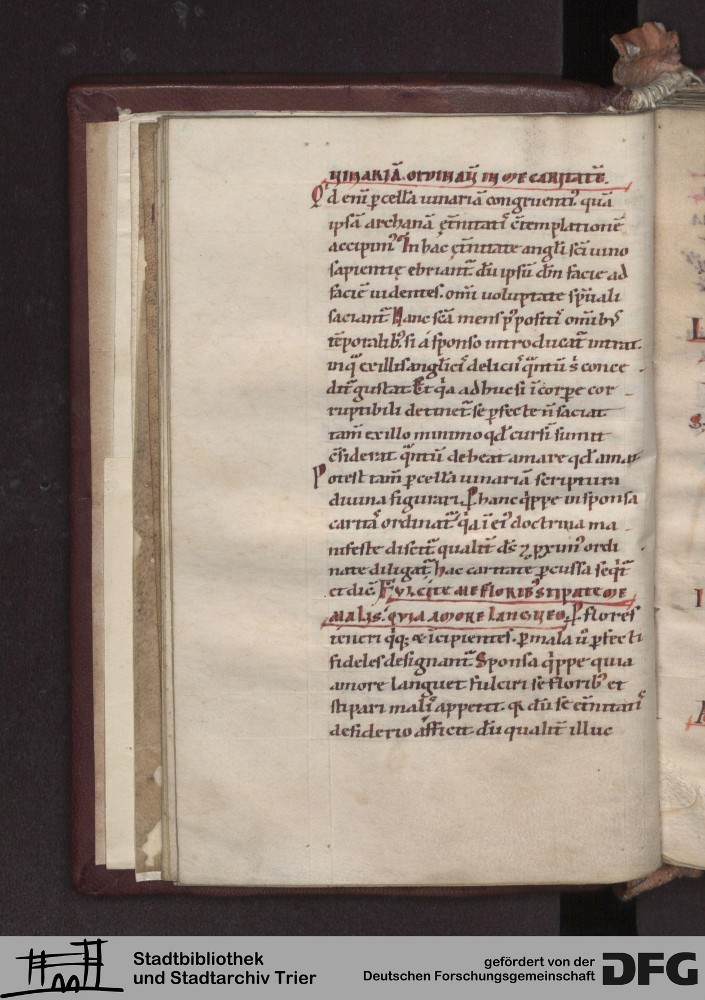 uinariā. ordinauͭ in me caritatē.
Qd̄ eni᷒ p̲ cellā uinariā congruenti᷒ quā
ipsā archanā et̄nitatis c̄templationē
accipim᷒ In hac et̄nitate angeli sc̄i uino
sapientię ebriant᷑ dū ipsū dn̄m facie ad
faciē uidentes. omi᷑ uoluptate sp̄uali
saciant᷑ Hanc
tēporalib᷒ si a sponso introducat᷑ intrat.
dit᷑ gustat Et q̇a adhuc si ī corpe cor
ruptibili detinet᷑ se pfecte n̄ saciat
tam̄ ex illo minimo qd̄
c̄siderat q̇ntū debeat amare qd̄ amat
Potest tam̄ p̲ cellā uinariā scriptura
diuina figurari. P̲ hanc q̇ppe in sponsa
caritas ordinat᷑ q̇a ī ei᷒ doctrina ma
nifeste discit᷑ qualit᷑ ds̄ ⁊ p̲xim᷒ ordi
nate diligat᷑ hac caritate p̲cussa seq̇t᷑
et dic̄ Fulcite me florib᷒ stipate me
malis. quia amore langueo. P̲ flores
teneri q̇q; & īcipientes. p̲ mala u᷑ p̲fecti
fideles designant᷑ Sponsa q̇ppe quia
amore languet fulciri se florib᷒ et
stipari malis appetit. q̇ dū se et̄nitatis
desiderio afficit dū qualit᷑ illuc
Stadtbibliothek
und Stadtarchiv Trier
gefördert von der
Deutschen Forschungsgemeinschaft
DFG